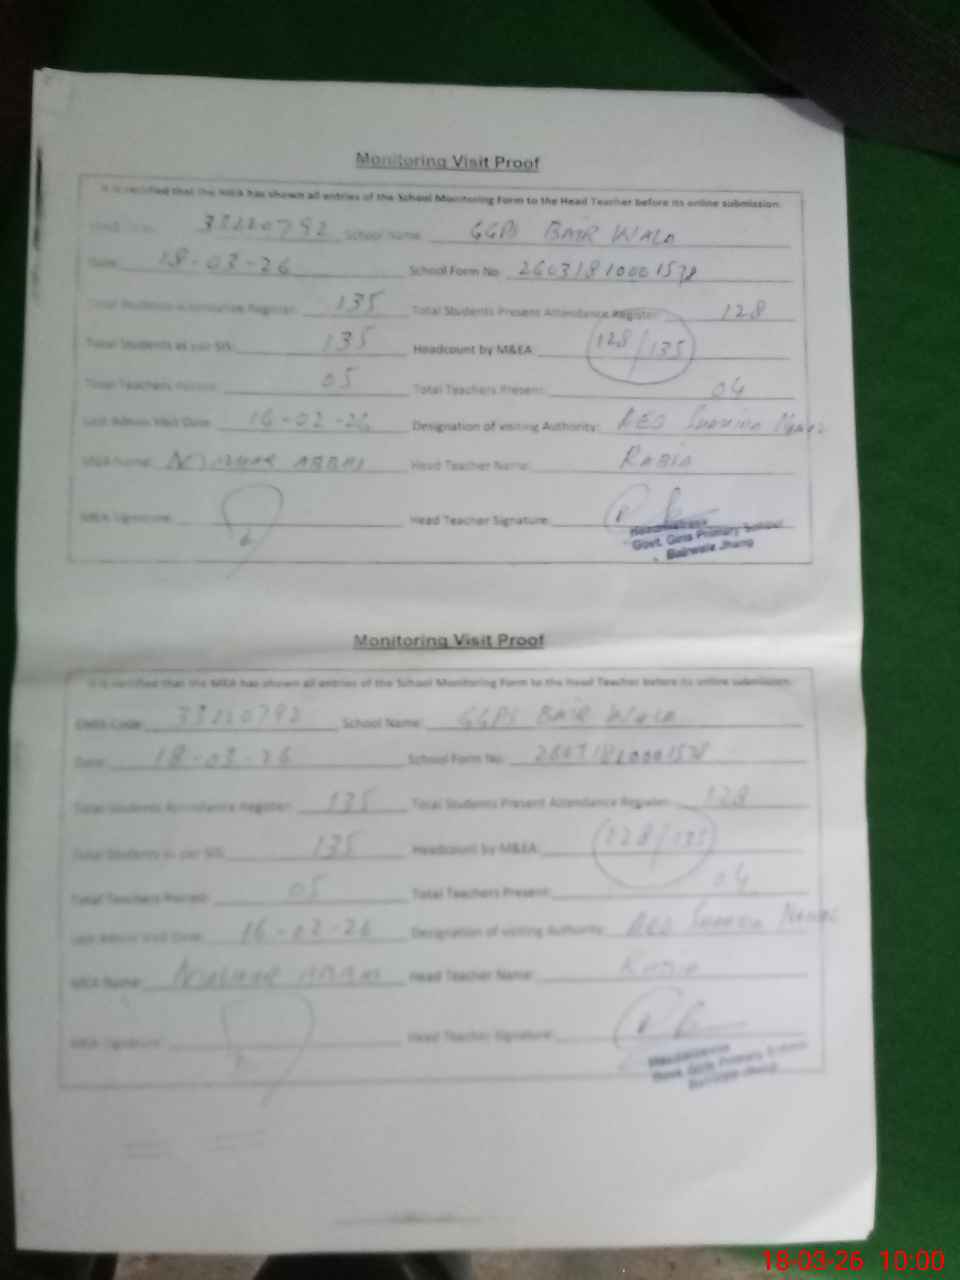 Monitoring Visit Proof
It is certified that the MEA has shown all entries of the School Monitoring Form to the Head Teacher before its online submission.
33220792 School Name: GGPS BAIR WALA
Date: 18-03-26 School Form No: 26031810001578
Total Students Attendance Register: 135 Total Students Present Attendance Register: 128
Total Students as per SIS: 135 Headcount by M&EA: 128/135
Total Teachers Posted: 05 Total Teachers Present: 04
Last Admin Visit Date: 16-02-26 Designation of visiting Authority: AEO
MEA Name: ABBAS Head Teacher Name: RABIA
MEA Signature: Head Teacher Signature:
Headmistress
Govt. Girls Primary School
Bairwala Jhang
Monitoring Visit Proof
It is certified that the MEA has shown all entries of the School Monitoring Form to the Head Teacher before its online submission.
EMIS Code: 33220792 School Name: GGPS BAIR WALA
Date: 18-03-26 School Form No: 26031810001578
Total Students Attendance Register: 135 Total Students Present Attendance Register: 128
Total Students as per SIS: 135 Headcount by M&EA: 128/135
Total Teachers Posted: 05 Total Teachers Present: 04
Last Admin Visit Date: 16-02-26 Designation of visiting Authority: AEO
MEA Name: ABBAS Head Teacher Name: Rabia
MEA Signature: Head Teacher Signature:
Headmistress
Govt. Girls Primary School
Bairwala Jhang
18-03-26 10:00